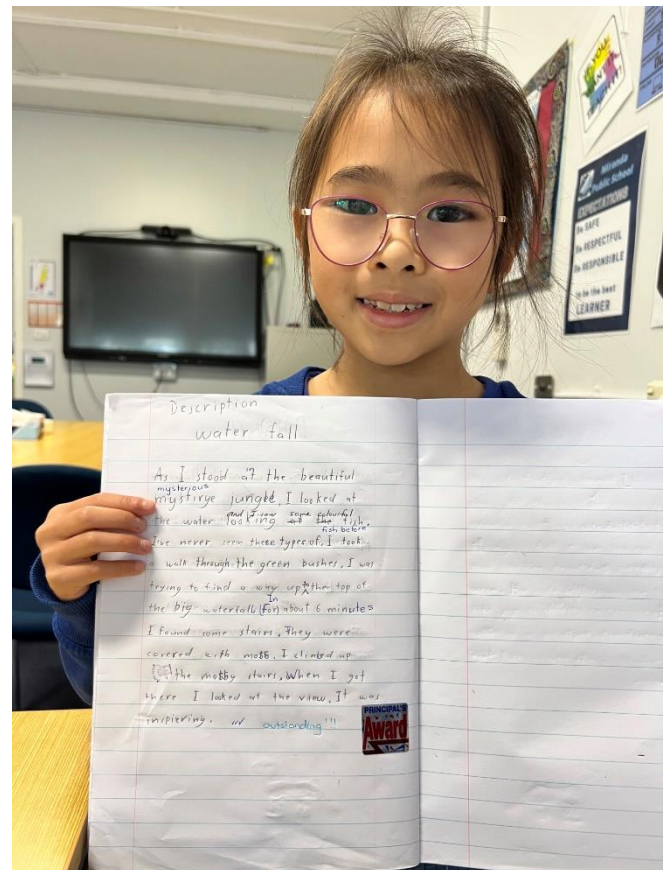 YOU
Miranda
Public School
EXPECTATIONS
Be SAFE
Be RESPECTFUL
Be RESPONSIBLE
to be the best
LEARNER
Description
water fall
As I stood at the beautiful
mysterious
mystirye jungle, I looked at
and I saw some colourful
the water looking at the fish
fish before
I've never seen these types of. I took
a walk through the green bushes, I was
trying to find a way up to the top of
the big waterfall (For) In about 6 minutes
I found some stairs, They were
covered with moss. I climbed up
the mossy stairs, When I got
there I looked at the view, It was
inspiering. outstanding!!!
PRINCIPAL'S
Award